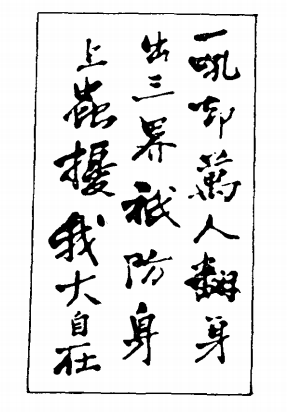 一吼卻萬人翻身
出三界祇防身
上蟲擾我大自在